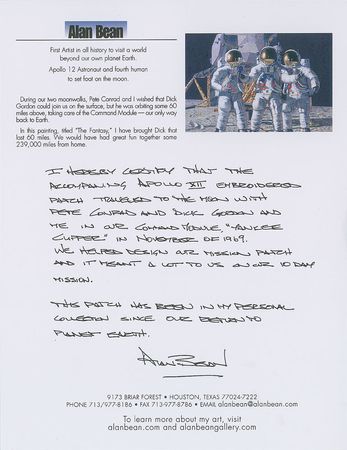 Alan Bean
First Artist in all history to visit a world
beyond our own planet Earth.
Apollo 12 Astronaut and fourth human
to set foot on the moon.
During our two moonwalks, Pete Conrad and I wished that Dick
Gordon could join us on the surface, but he was orbiting some 60
miles above, taking care of the Command Module — our only way
back to Earth.
In this painting, titled "The Fantasy," I have brought Dick that
last 60 miles. We would have had great fun together some
239,000 miles from home.
I HEREBY CERTIFY THAT THE
ACCOMPANING APOLLO XII EMBROIDERED
PATCH TRAVELED TO THE MOON WITH
PETE CONRAD AND DICK GORDON AND
ME IN OUR COMMAND MODULE, "YANKEE
CLIPPER" IN NOVEMBER OF 1969.
WE HELPED DESIGN OUR MISSION PATCH
AND IT MEANT A LOT TO US ON OUR 10 DAY
MISSION.
THIS PATCH HAS BEEN IN MY PERSONAL
COLLECTION SINCE OUR RETURN TO
PLANET EARTH.
Alan Bean
9173 BRIAR FOREST • HOUSTON, TEXAS 77024-7222
PHONE 713/977-8186 • FAX 713-977-8786 • EMAIL alanbean@alanbean.com
To learn more about my art, visit
alanbean.com and alanbeangallery.com